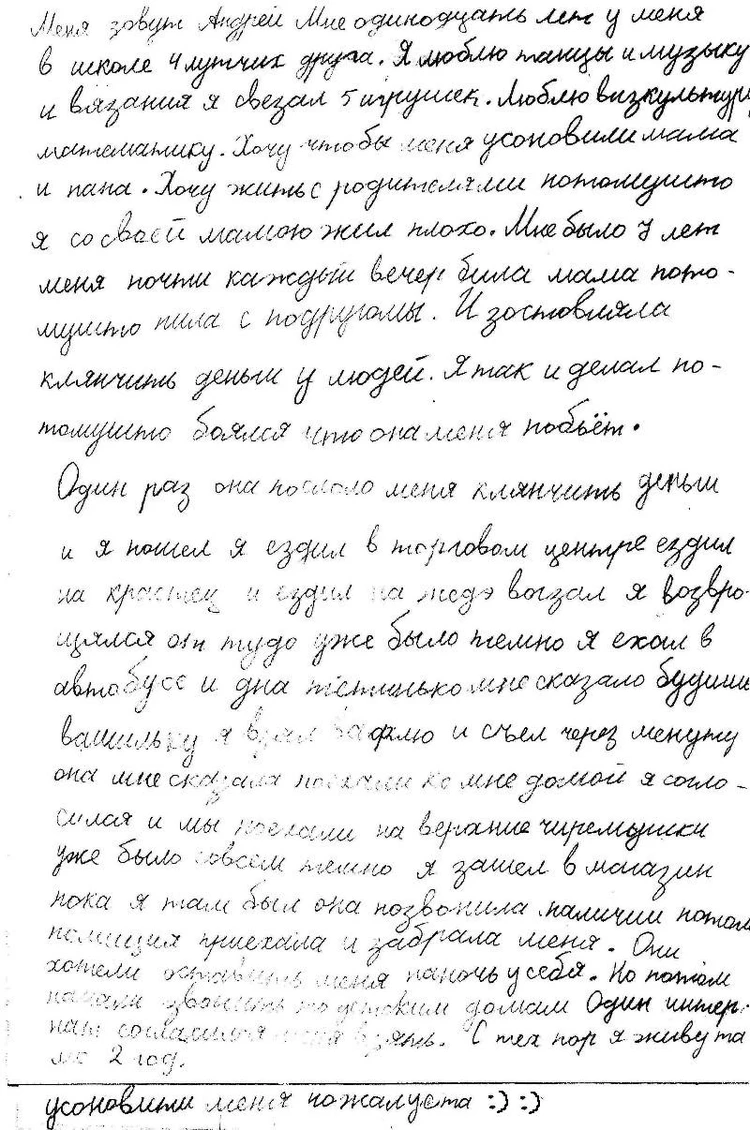 Меня зовут Андрей Мне одинодцать лет у меня
в школе 4 лутчих друга. Я люблю танцы и музыку
и вязания я свезал 5 игрушек. Люблю визкультуру
математику. Хочу чтобы меня усоновили мама
и папа. Хочу жить с родителями потомушто
я со своей мамою жил плохо. Мне было 7 лет
меня почти каждый вечер била мама пото-
мушто пила с подругомы. И зостовляла
клянчить деньги у людей. Я так и делал по-
томушто боялся что она меня побьёт.
Один раз она послоло меня клянчить деньги
и я пошел я ездил в торговом центре ездил
на крастец и ездил на жедэ вогзал я возвро-
щялся от тудо уже было темно я ехал в
автобусе и дна тётинько мне сказало будишь
вашильку я взял вафлю и съел через менуту
она мне сказала поехали ко мне домой я согло-
сился и мы поехали на верхние чиремушки
уже было совсем темно я зашел в магазин
пока я там был она позвонила паличии потом
помиция приехала и забрала меня. Они
хотели оставить меня наночь у себя. Но потом
начали звонить по детским домам Один интер-
нат согласился меня взять. С тех пор я живу та
мо 2 год.
усоновити меня пожалуста :) :)